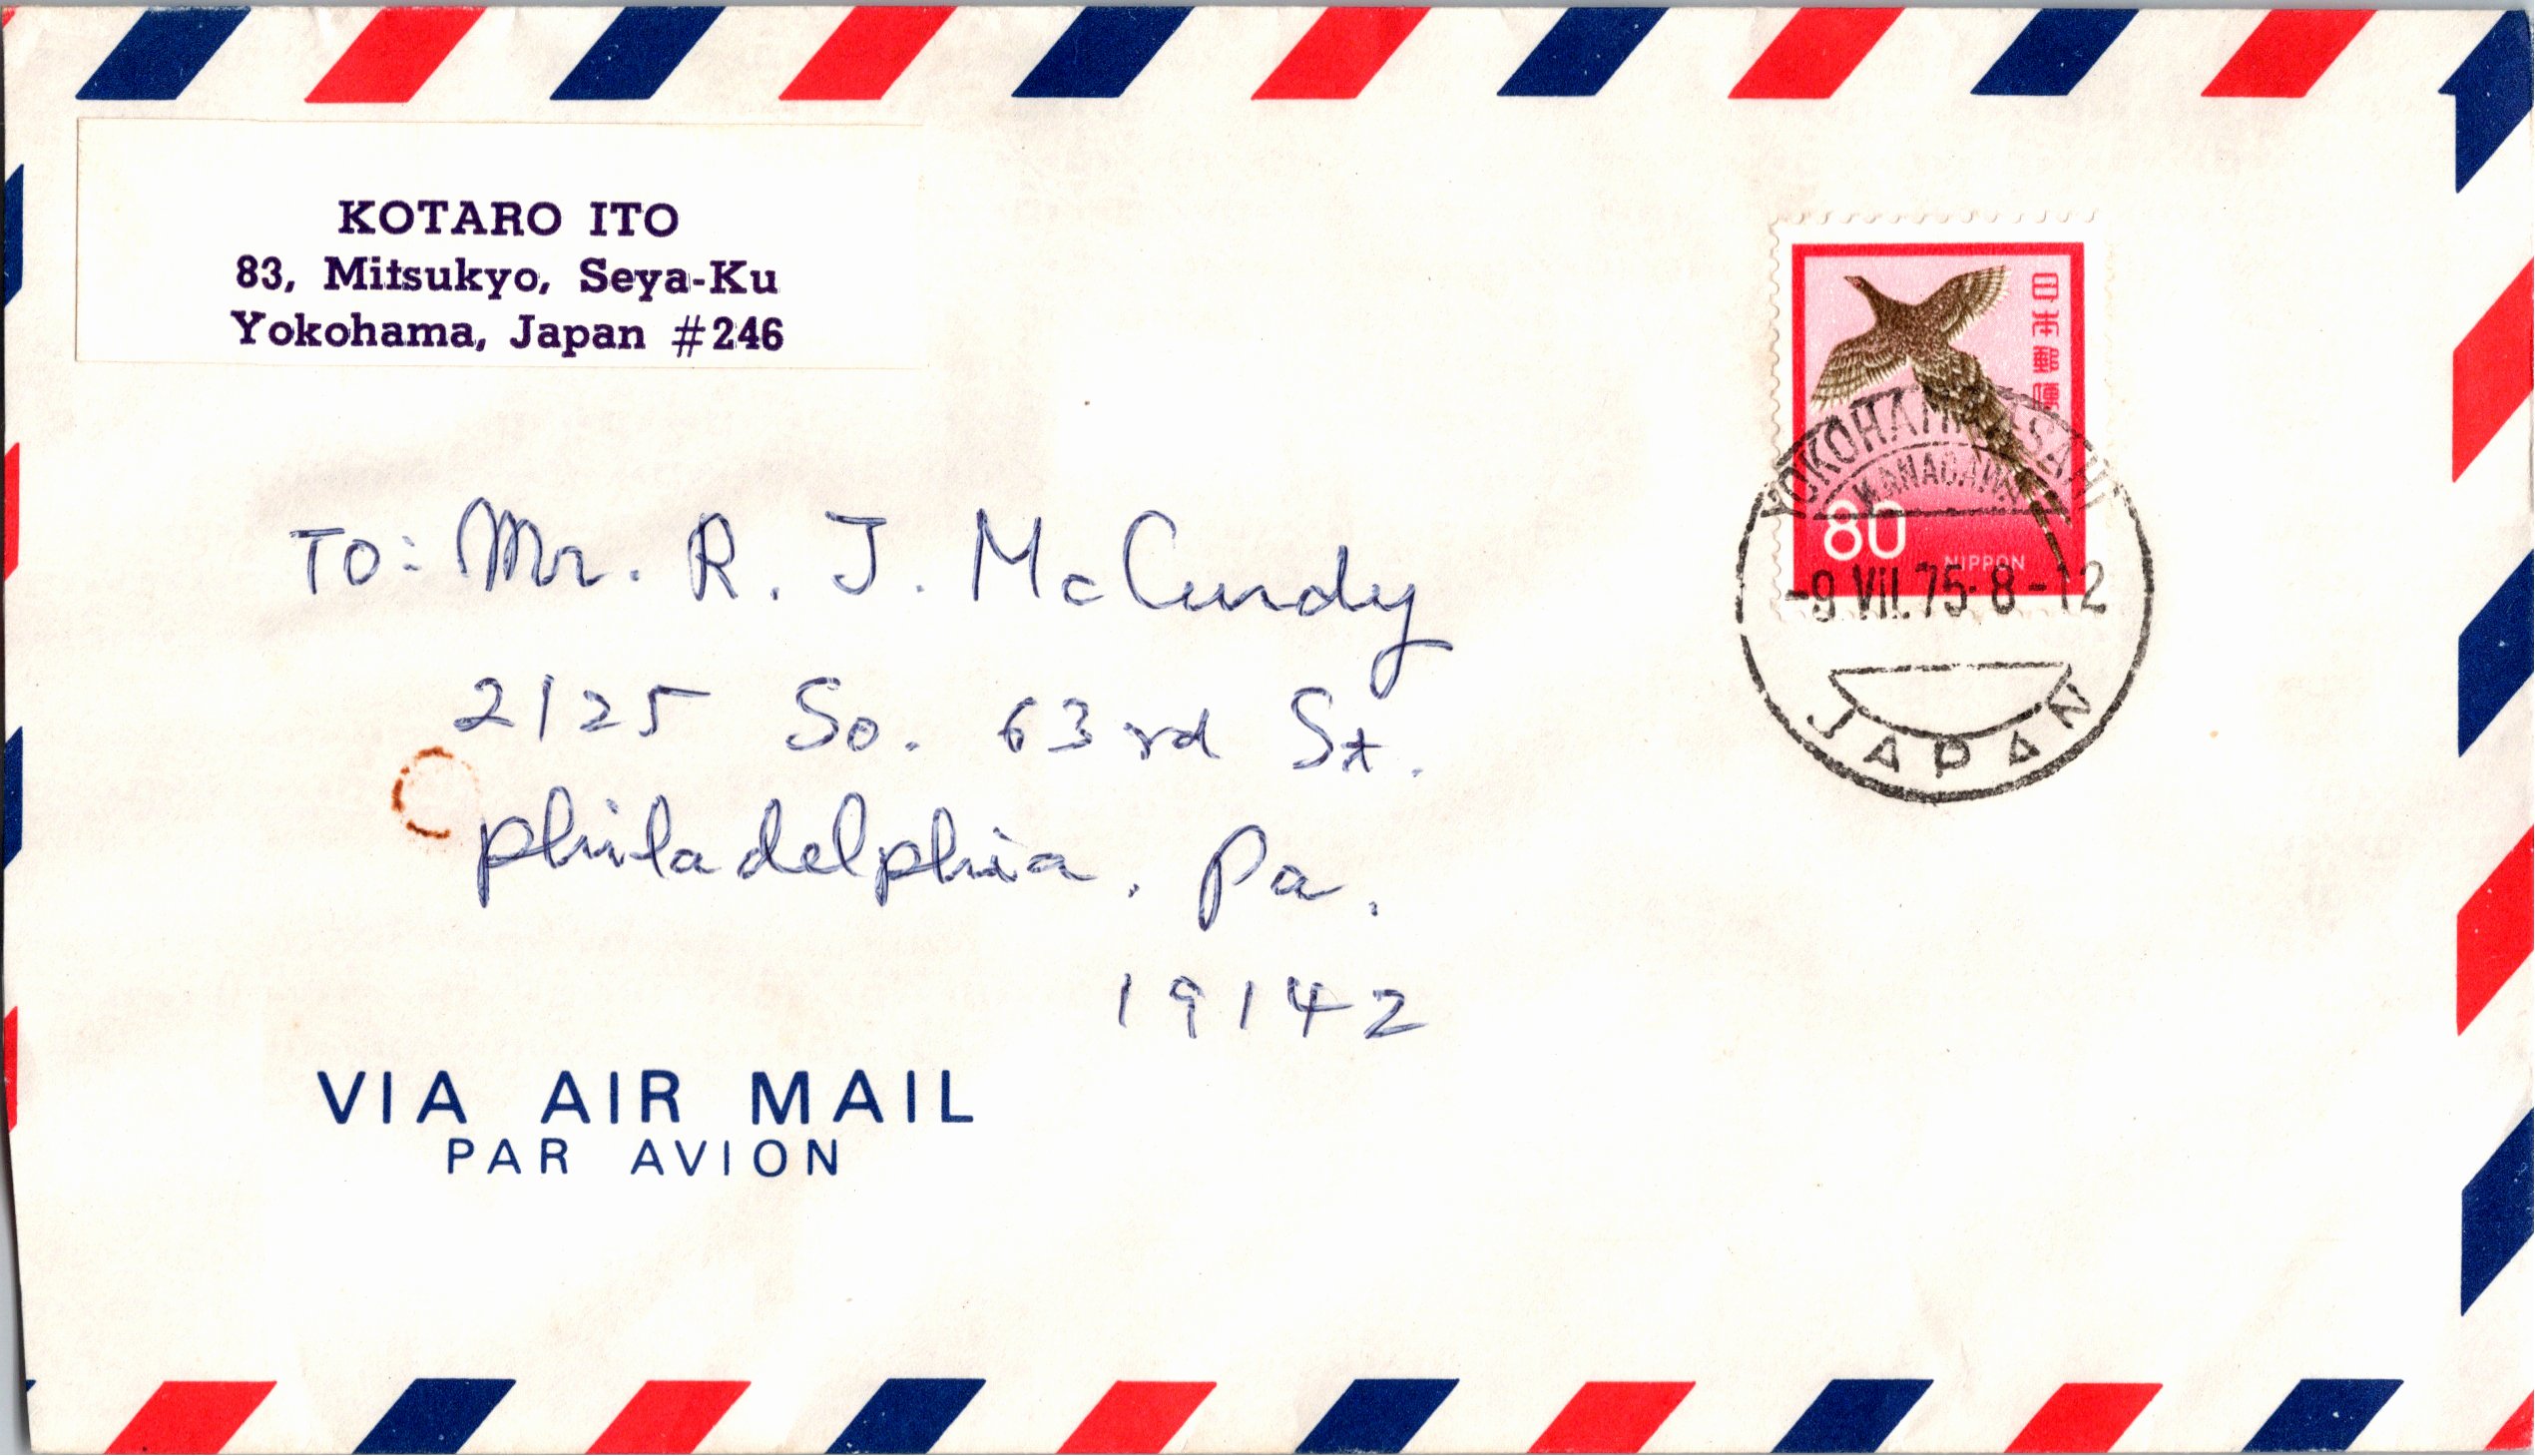 KOTARO ITO
83, Mitsukyo, Seya-Ku
Yokohama, Japan #246
日本郵便
80
NIPPON
YOKOHAMA-ASAHI
KANAGAWA
-9.VII.75.8-12
JAPAN
TO: Mr. R. J. McCurdy
2125 So. 63rd St.
philadelphia, Pa.
19142
VIA AIR MAIL
PAR AVION